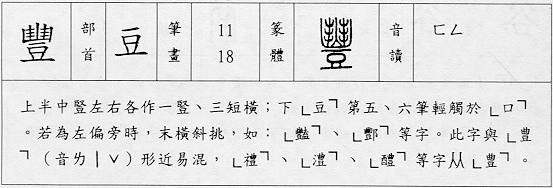 豐 部首 豆 筆畫 11 18 篆體 豐 音讀 ㄈㄥ
上半中豎左右各作一豎、三短橫；下「豆」第五、六筆輕觸於「口」
。若為左偏旁時，末橫斜挑，如：「豔」、「酆」等字。此字與「豊
」（音ㄌㄧˇ）形近易混，「禮」、「澧」、「醴」等字从「豊」。